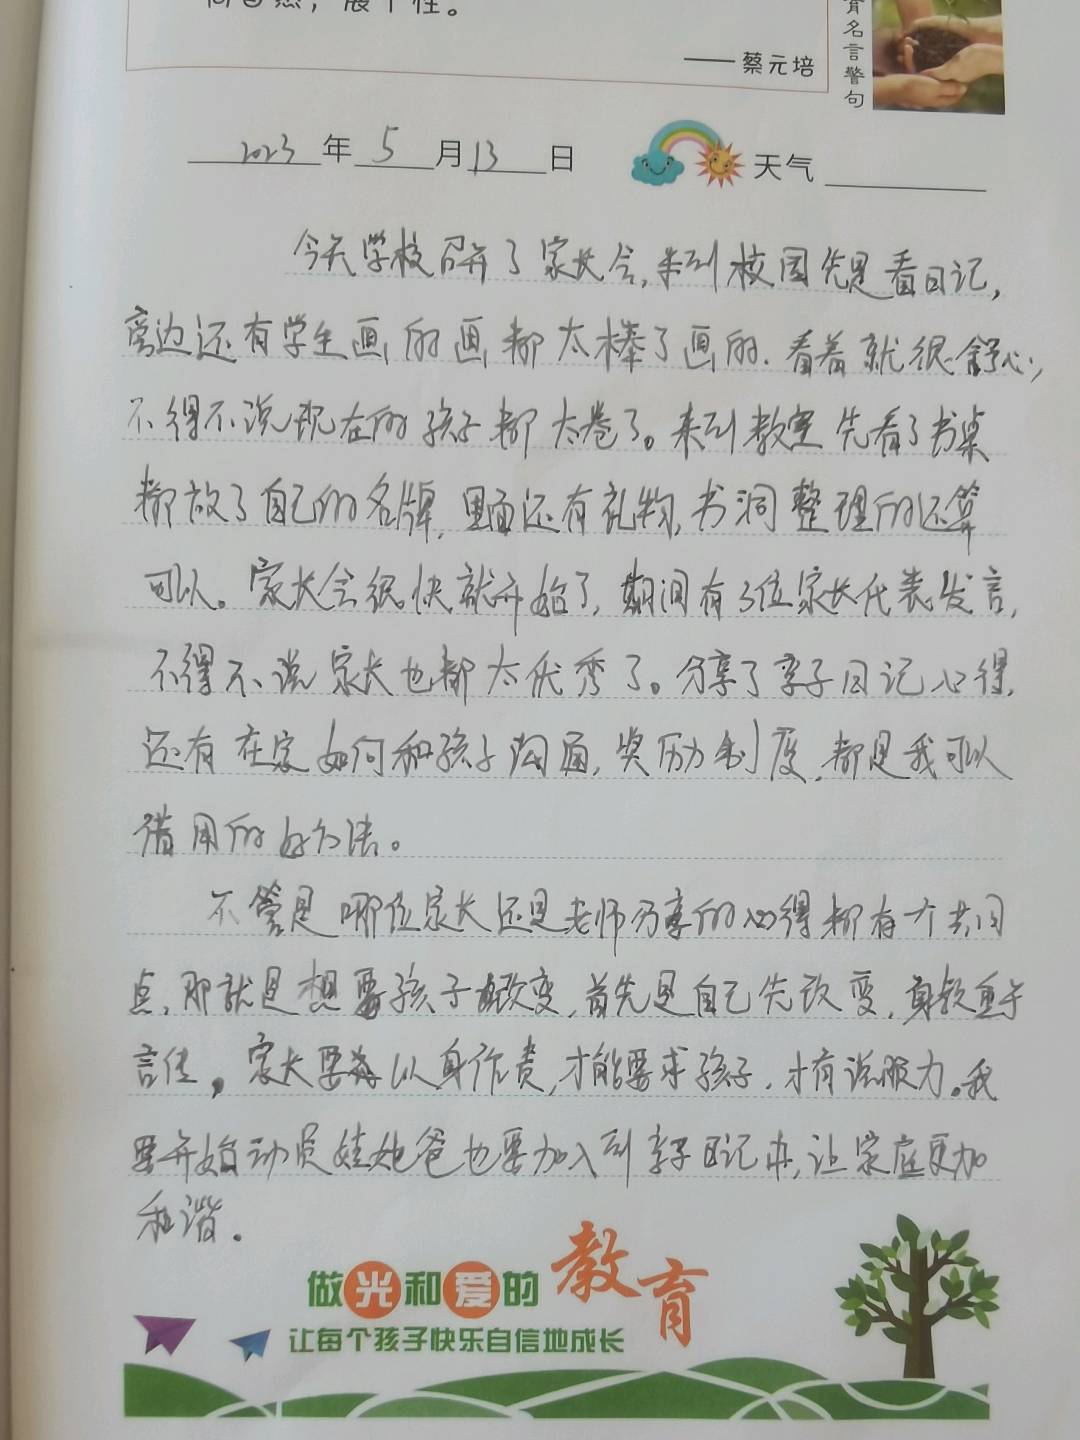 尚自然，展个性。
——蔡元培
育名言警句
2023年5月13日 天气
今天学校召开了家长会,来到校园先是看日记,
旁边还有学生画的画都太棒了画的.看着就很舒心,
不得不说现在的孩子都太卷了。来到教室先看了书桌
都放了自己的名牌,里面还有礼物,书洞整理的还算
可以。家长会很快就开始了,期间有3位家长代表发言,
不得不说家长也都太优秀了。分享了亲子日记心得,
还有在家如何和孩子沟通,奖历制度,都是我可以
借用的好方法。
不管是哪位家长还是老师分享的心得都有个共同
点,那就是想要孩子改变,首先是自己先改变,身教重于
言传,家长要以身作责,才能要求孩子.才有说服力。我
要开始动员娃她爸也要加入到亲子日记中,让家庭更加
和谐.
做光和爱的教育
让每个孩子快乐自信地成长